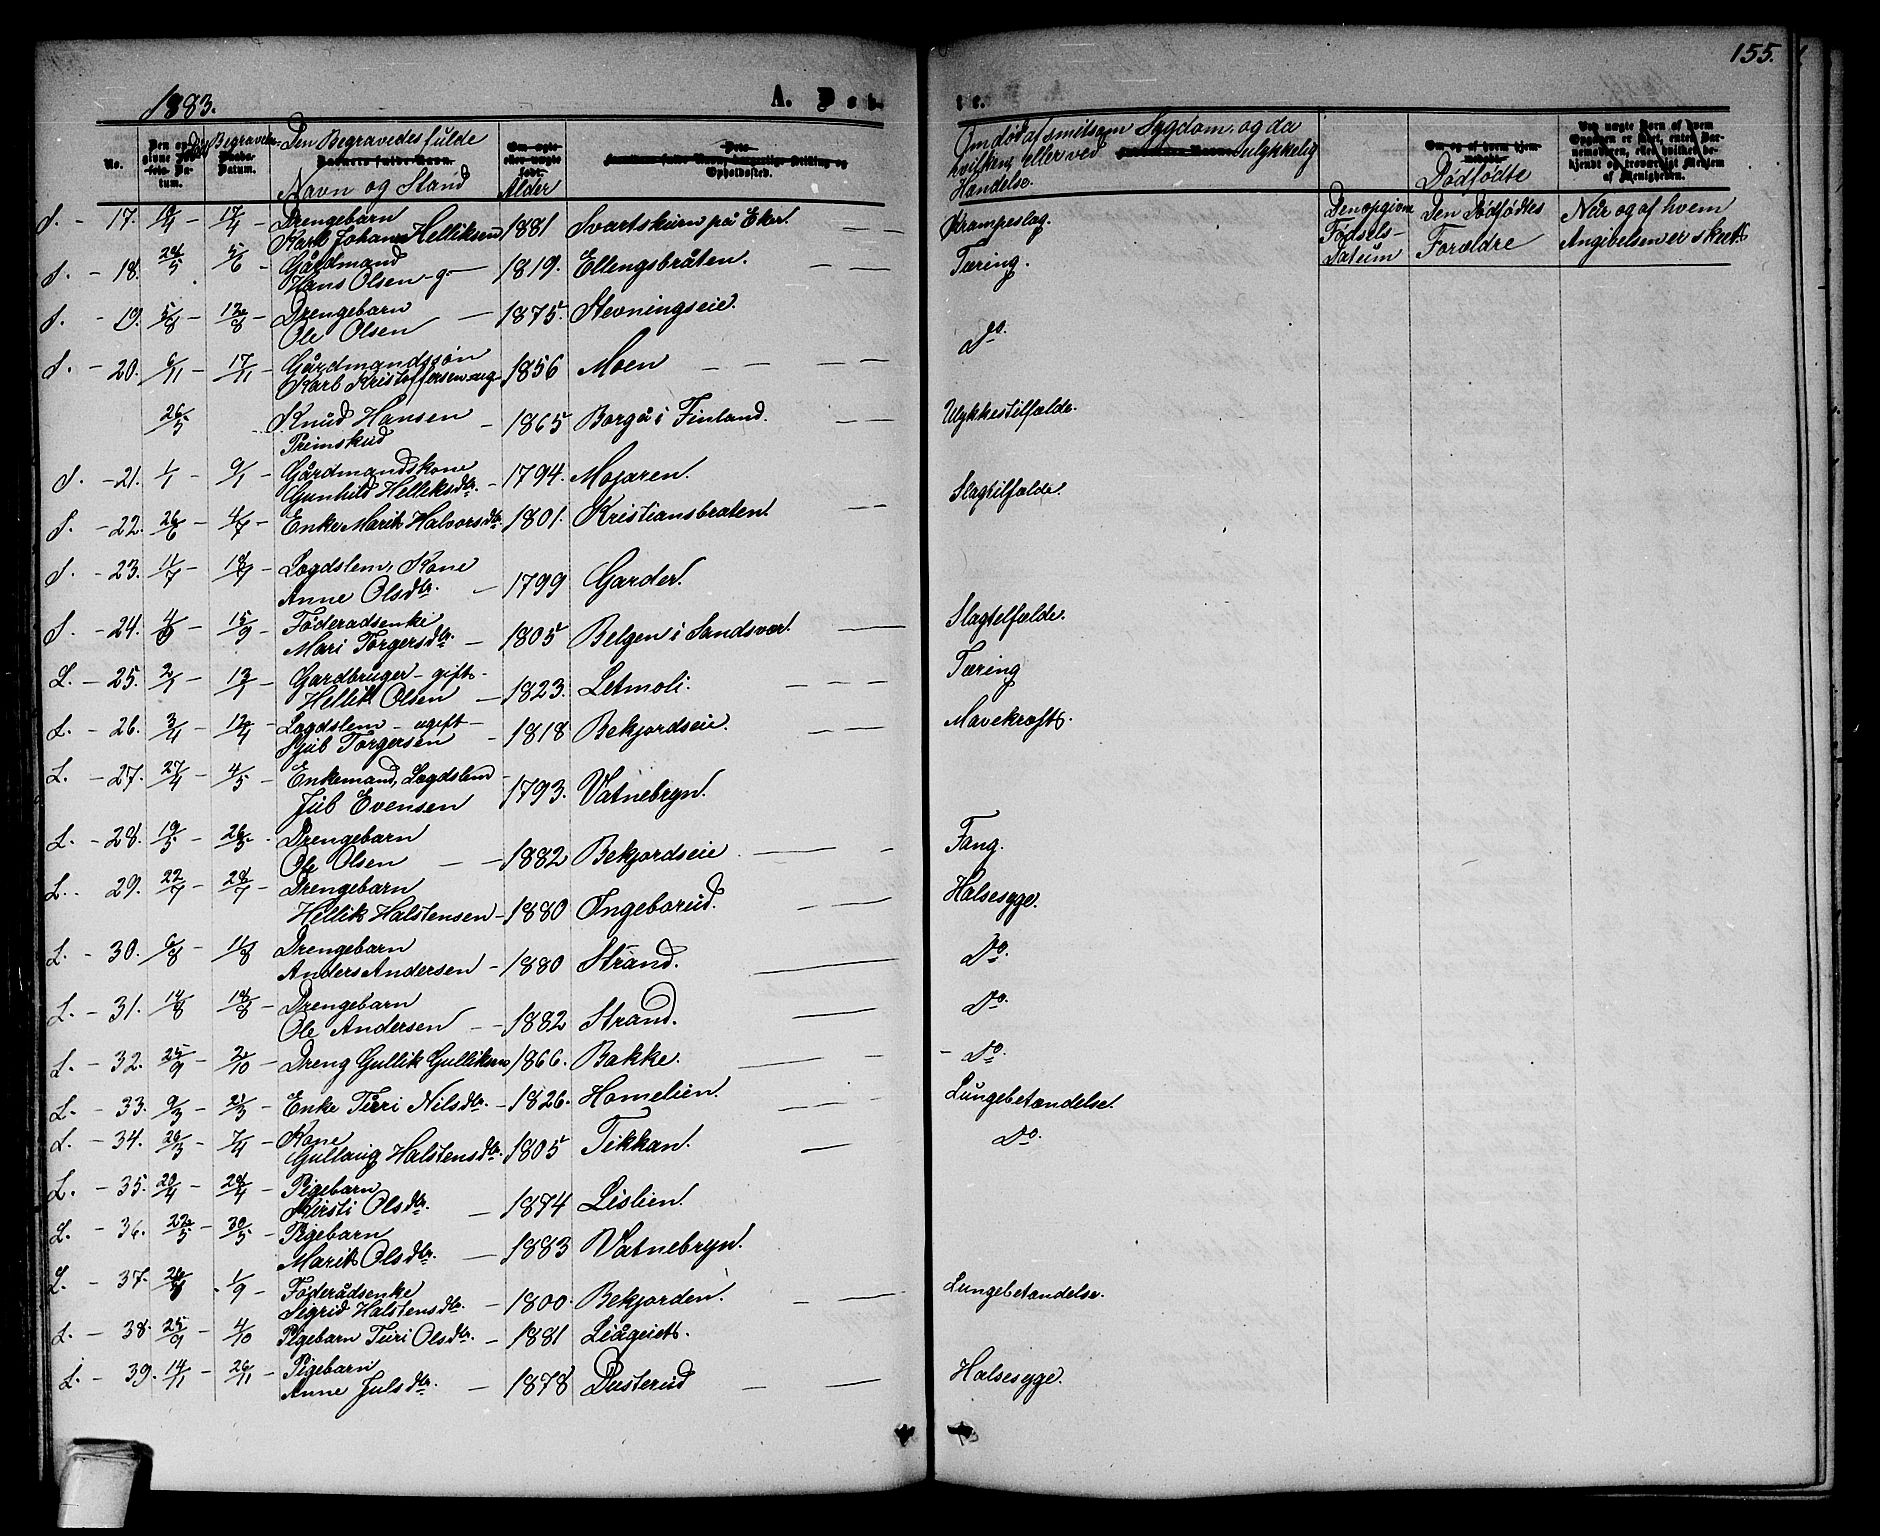 155.
1883.
A. Døb-
te.
No.
Begravelses
Datum.
Den Begravedes fulde
Barnets fulde Navn.
Navn og Stand
Om ægte
eller uægte
født.
Alder
Opholdssted.
Om død af smitsom Sygdom, og da
hvilken, eller ved ulykkelig
Hændelse.
Dødfødte
Den opgivne
Fødsels-
Datum
Den Dødfødtes
Forældre
Når og af hvem
Angivelsen er skeet
S. - 17. 17/4 - Drengebarn
Karl Johan Helliksen 1881 Svartskurn på Eker. Krampeslag.
S. - 18. 28/5 5/6 - Gårdmand
Hans Olsen - g - 1819. Ellengsbråten. Tæring.
S. - 19. 5/8 - 12/8 - Drengebarn
Ole Olsen - 1875. Stevningseie. Do.
S. - 20. 6/11 - 17/11 - Gårdmandssøn
Karl Kristoffersen - ug - 1856 Moen
26/5 Knud Hansen
Preimskud - 1865 Borgå i Finland. Ulykkestilfælde.
S. - 21. 1/1 - 9/1 - Gårdmandskone
Gunhild Helliksdtr. - 1794. Mojaren. Slagtilfælde.
S. - 22. 26/6 - 4/7 - Enke Marit Halvorsdtr. 1801. Kristiansbraten.
S. - 23. 11/7 - 18/7 Lægdslem, Kone
Anne Olsdtr. - 1799 Garder.
S. - 24. 4/9 15/9 - Føderadsenke
Mari Torgersdtr. - 1805 Belgen i Sandsvær. Slagtelfælde.
L. - 25. 2/1 - 13/1 - Gardbruger - gift -
Hellik Olsen - 1823. Letmoli. Tæring
L. - 26. 3/4 - 12/4 - Lægdslem - ugift -
Sjul Torgersen - 1818 Bekjordseie. Mavekræft.
L. - 27. 27/4 - 4/5 - Enkemand, Lægdslem
Jul Evensen - 1793. Vatnebryn.
L. - 28. 19/5 - 26/5 - Drengebarn
Ole Olsen - 1882 Bekjordseie Fang.
L. - 29. 22/7 - 28/7 - Drengebarn
Hellik Halstensen - 1880 Ingeborud. Halsesyge.
L. - 30. 6/8 - 11/8 - Drengebarn
Anders Andersen - 1880 Strand. Do.
L. - 31. 14/8 18/8 - Drengebarn
Ole Andersen - 1882 Strand. Do.
L. - 32. 25/9 - 2/10 - Dreng Gullik Gulliksen 1866. Bakke. Do.
L. - 33. 9/3 - 21/3 - Enke Turi Nilsdtr. - 1826. Homelien. Lungebetændelse.
L. - 34. 26/3 - 7/4 - Kone
Gullaug Halstensdtr. 1805 Tikkan. Do.
L. - 35. 20/4 - 28/4 - Pigebarn
Kirsti Olsdtr. - 1874 Lislien.
L. - 36. 22/5 - 30/5 - Pigebarn
Marit Olsdtr. - 1883 Vatnebryn.
L. - 37. 1/9 - Føderådsenke
Sigrid Halstensdtr. - 1800. Bekjorden. Lungebetændelse.
L. - 38. 25/9 - 4/10 - Pigebarn Turi Olsdtr. - 1881
L. - 39. 14/11 - 26/11 - Pigebarn
Anne Julsdtr. - 1878 Dusterud Halsesyge.